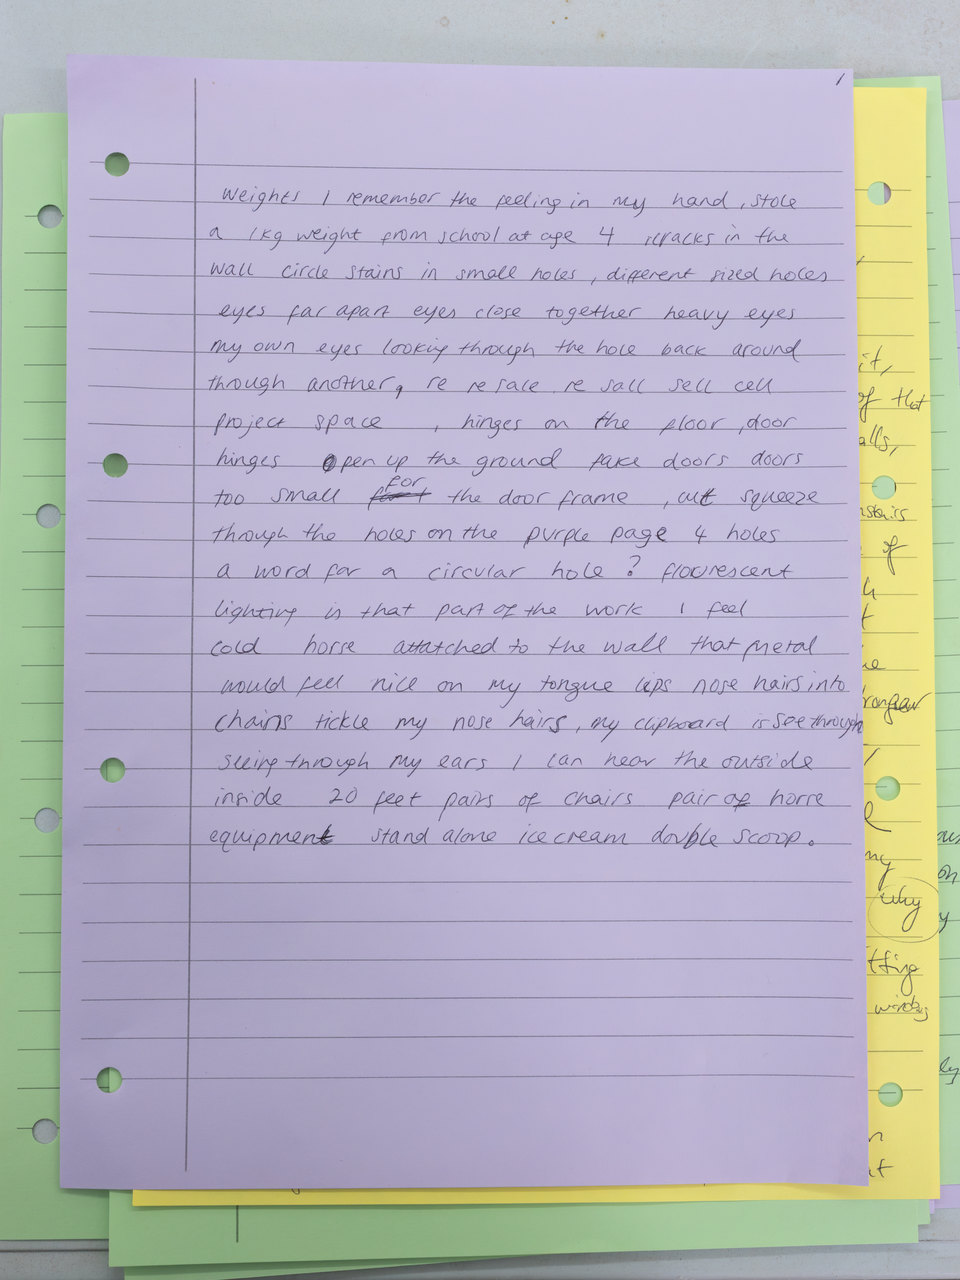 weights I remember the feeling in my hand, stole
a 1kg weight from school at age 4 cracks in the
wall circle stains in small holes, different sized holes
eyes far apart eyes close together heavy eyes
my own eyes looking through the hole back around
through another, re re sale re sall sell cell
project space , hinges on the floor, door
hinges open up the ground fake doors doors
too small for the door frame , squeeze
through the holes on the purple page 4 holes
a word for a circular hole? flourescent
lighting is that part of the work I feel
cold horse attatched to the wall that metal
would feel nice on my tongue lips nose hairs into
chains tickle my nose hairs, my clipboard is see through
seeing through my ears I can hear the outside
inside 20 feet pairs of chairs pair of horse
equipment stand alone ice cream double scoop.
it,
of that
alls,
of
my
why